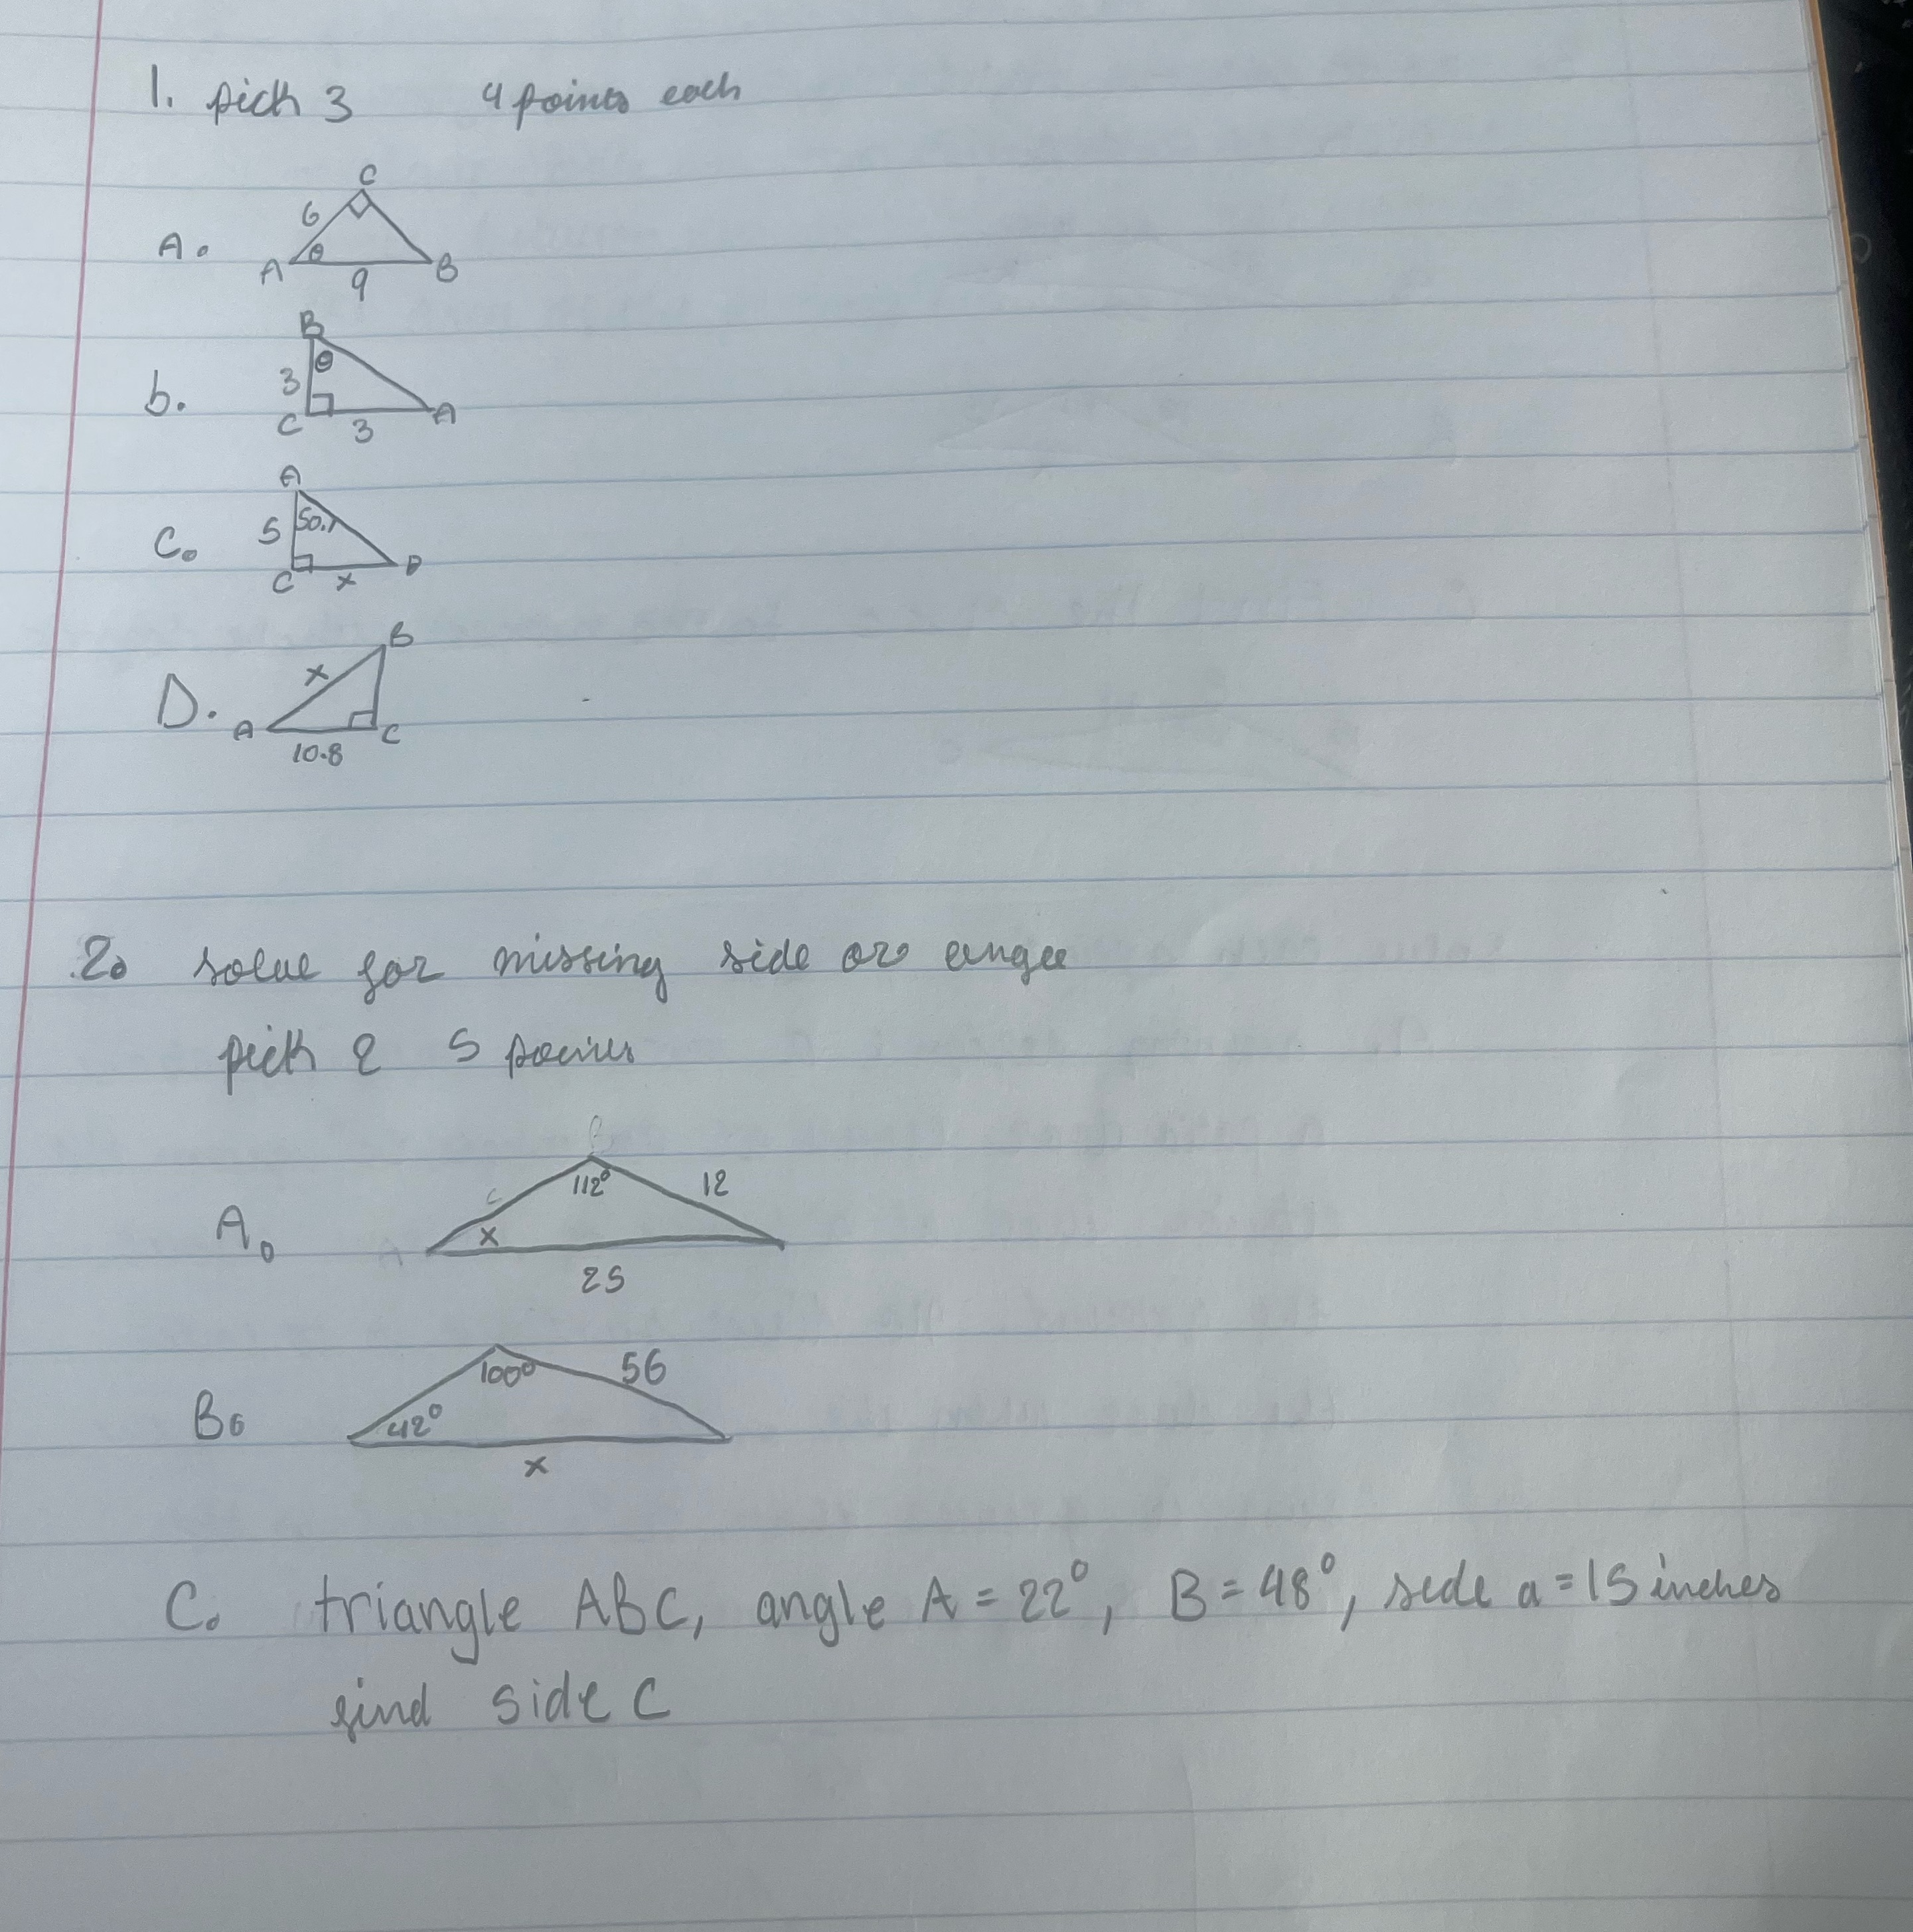 1. pick 3 4 points each
A.
C
6
θ
A 9 B
b.
B
θ
3
C 3 A
C.
A
5 50.1
C x B
D.
B
x
A C
10.8
2. solve for missing side or angle
pick 2 5 points
A.
B
112° 12
c
x
25
B.
100° 56
42°
x
C. triangle ABC, angle A = 22°, B = 48°, side a = 15 inches
find side C